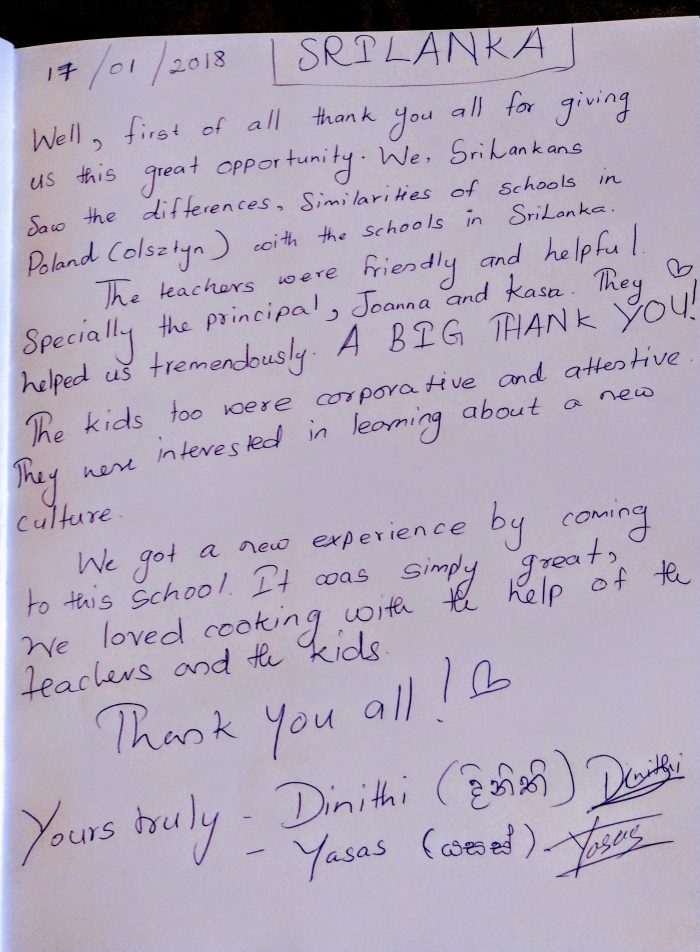 17/01/2018 SRILANKA
Well, first of all thank you all for giving
us this great opportunity. We, SriLankans
saw the differences, Similarities of schools in
Poland (olsztyn) with the schools in SriLanka.
The teachers were friendly and helpful.
Specially the principal, Joanna and Kasa. They
helped us tremendously. A BIG THANK YOU!
The kids too were corporative and attestive.
They were interested in learning about a new
culture.
We got a new experience by coming
to this school. It was simply great,
We loved cooking with the help of the
teachers and the kids.
Thank you all!
Yours truly - Dinithi (දිනිති) Dinithi
- Yasas (යසස්). Yasas